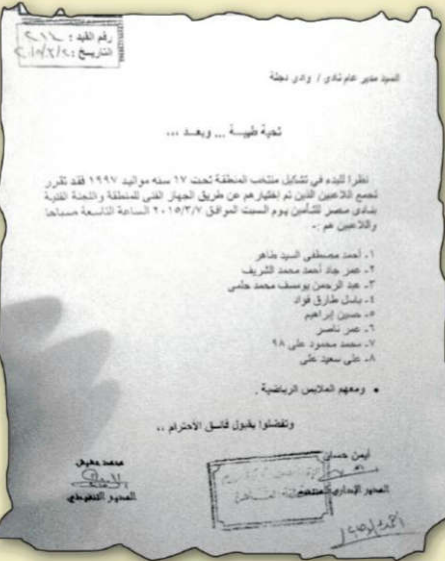 رقم القيد : ٢١٨
التاريخ : ٢٠١٥/٣/٢
السيد مدير عام نادى / وادى دجلة
تحية طيبة ... وبعد ...
نظرا للبدء فى تشكيل منتخب المنطقة تحت ١٧ سنه مواليد ١٩٩٧ فقد تقرر
تجمع اللاعبين الذين تم إختيارهم عن طريق الجهاز الفنى للمنطقة واللجنة الفنية
بنادى مصر للتأمين يوم السبت الموافق ٢٠١٥/٣/٧ الساعة التاسعة صباحا
واللاعبين هم :-
١- أحمد مصطفى السيد طاهر
٢- عمر جاد أحمد محمد الشريف
٣- عبد الرحمن يوسف محمد حلمى
٤- باسل طارق فواد
٥- حسين إبراهيم
٦- عمر ناصر
٧- محمد محمود على ٩٨
٨- على سعيد على
• ومعهم الملابس الرياضية .
وتفضلوا بقبول فائق الأحترام ..
أيمن حسان
المدير الإدارى للمنتخب
محمد
المدير التنفيذى